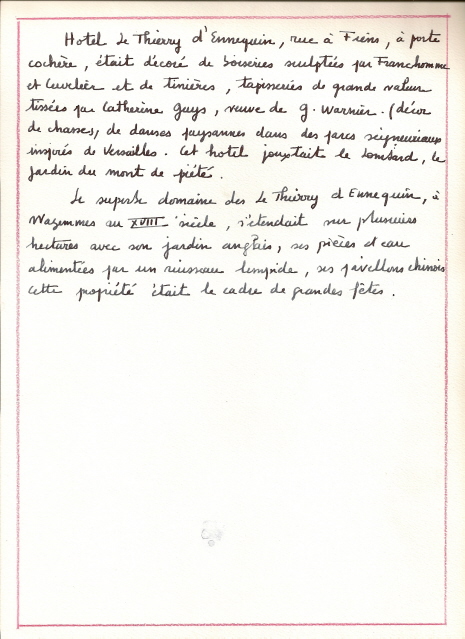 Hotel Le Thierry d'Ennequin, rue à Fiens, à porte
cochère, était décoré de boiseries sculptées par Franchomme
et Cuvelier et de tinières, tapisseries de grande valeur
tissées par Catherine Guys, veuve de G. Warnier. (décor
de chasses, de danses paysannes dans des parcs seigneuriaux
inspirés de Versailles. Cet hotel jouxtait le Lombard, le
jardin du mont de piété.
Le superbe domaine des Le Thierry d'Ennequin, à
Wazemmes au XVIII siècle, s'étendait sur plusieurs
hectares avec son jardin anglais, ses pièces d'eau
alimentées par un ruisseau limpide, ses pavillons chinois
cette propiété était le cadre de grandes fêtes.